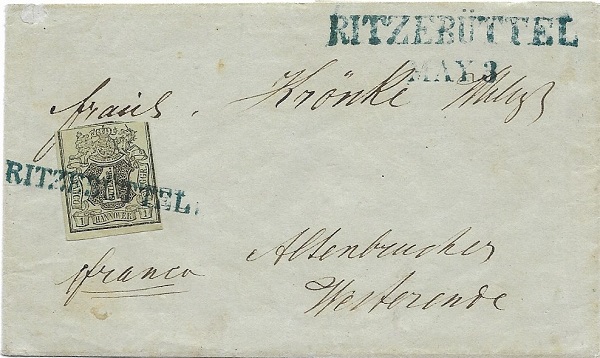 RITZEBÜTTEL
MAY 3
Krönke
RITZEBÜTTEL.
1 HANNOVER 1
franco
Altenbrucher
Westerende